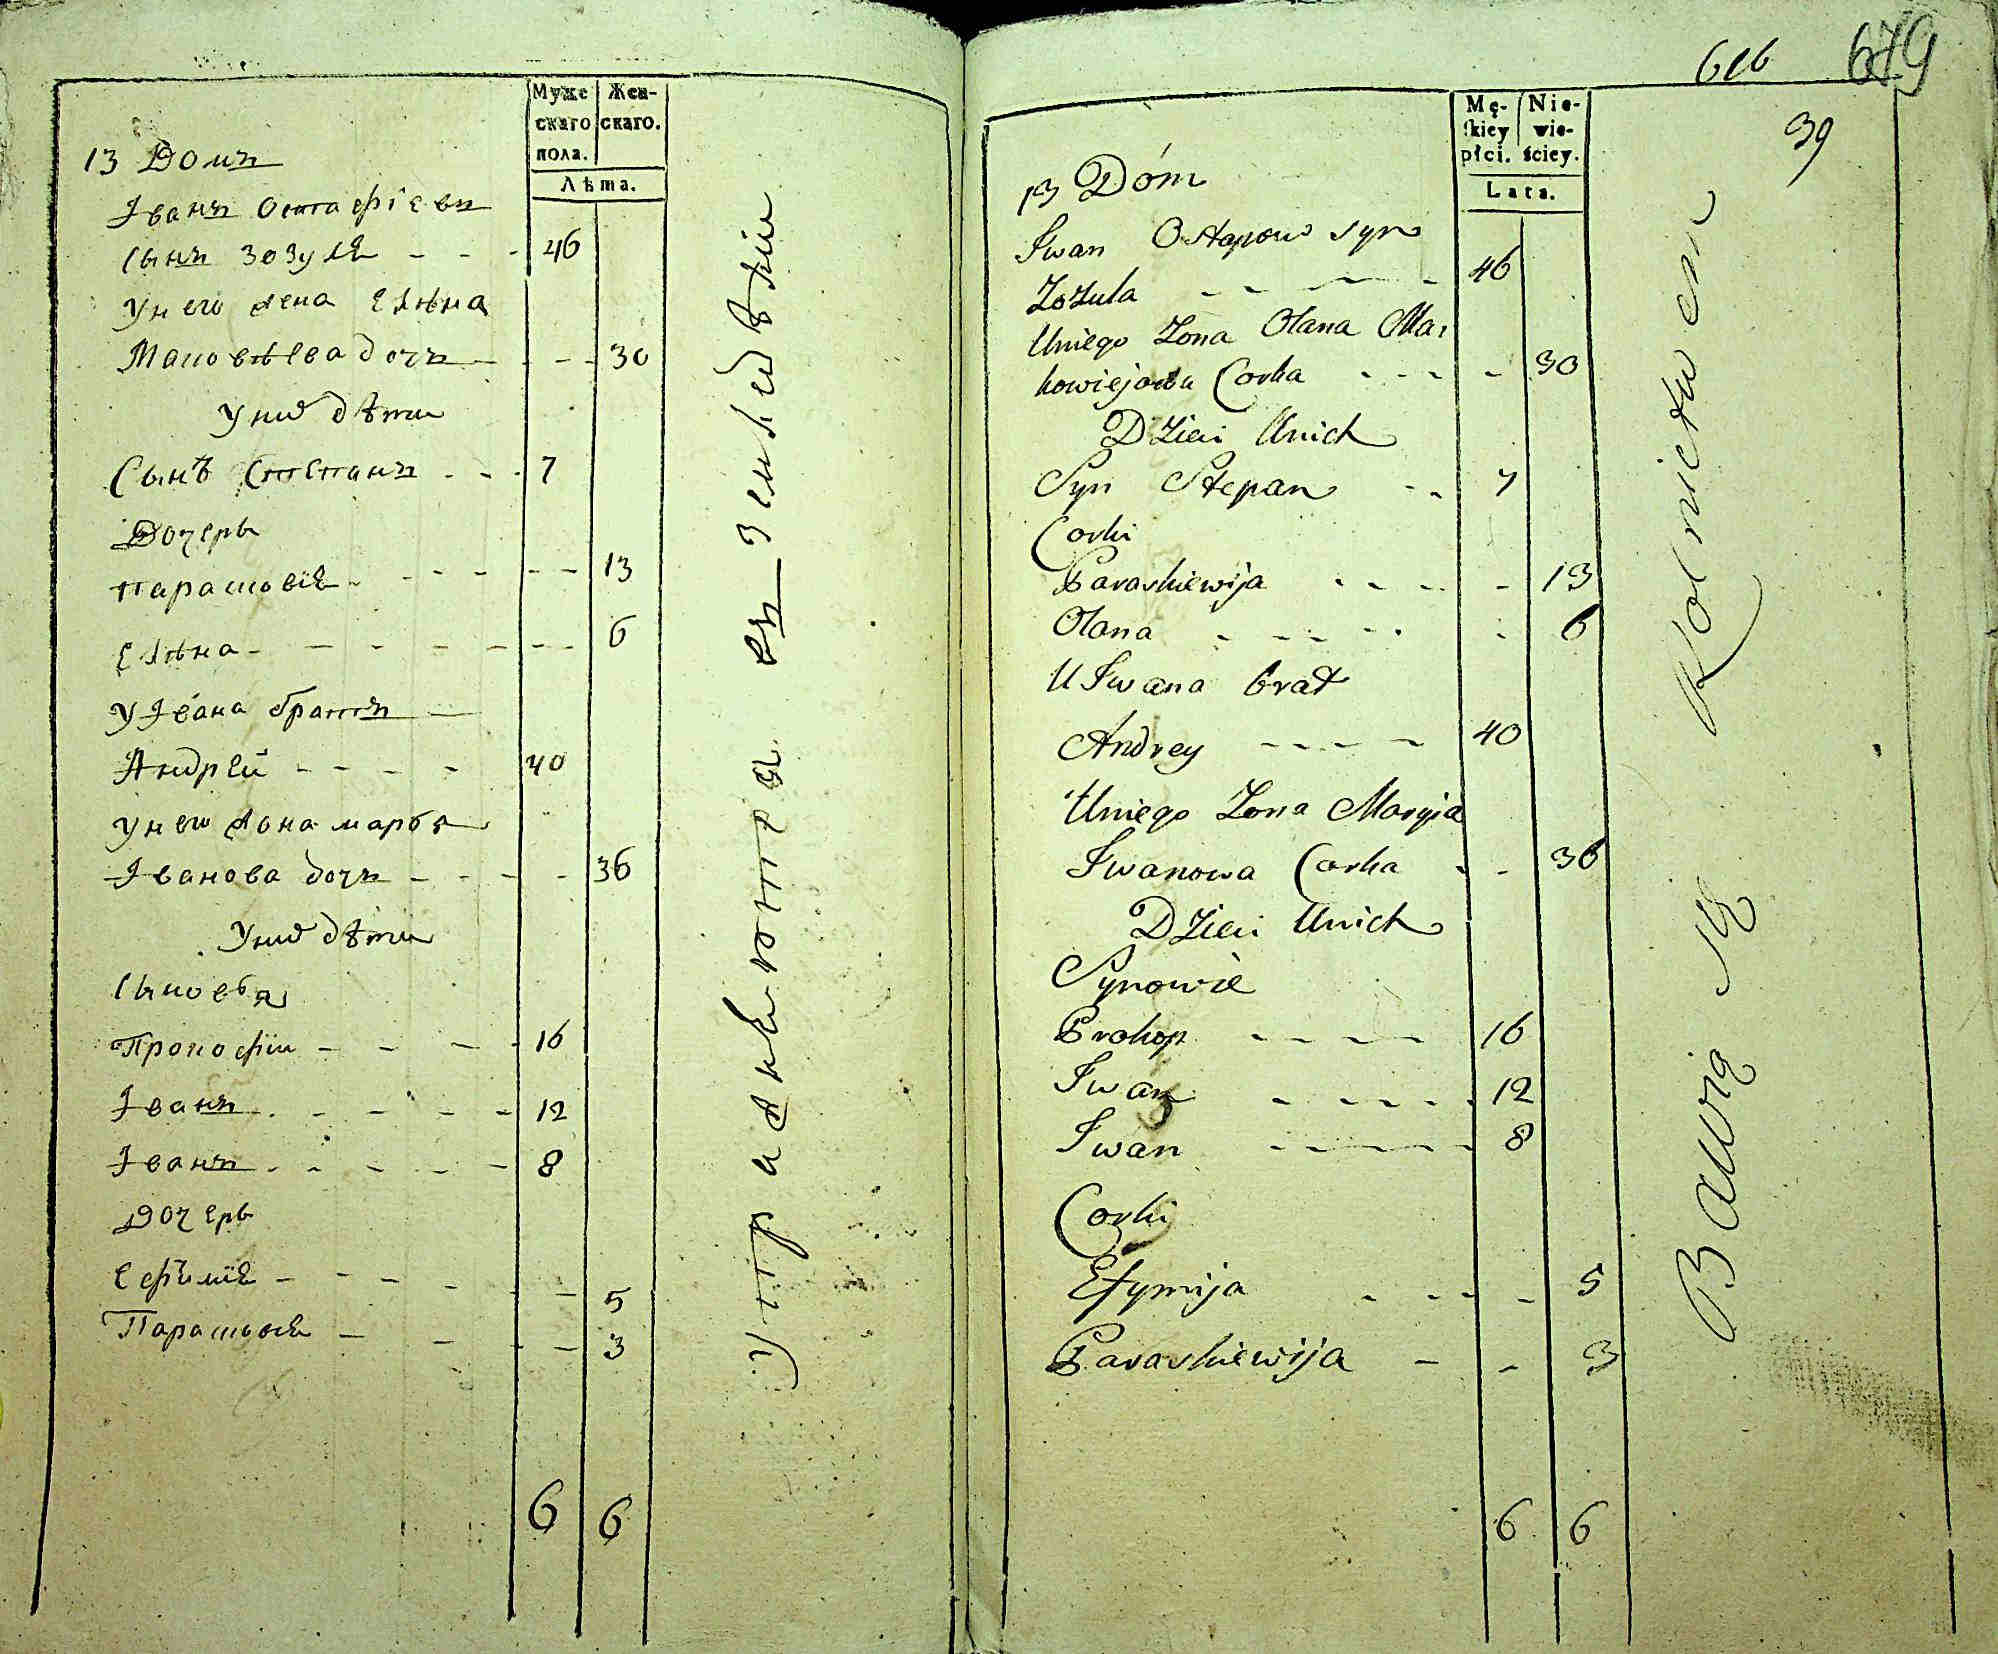 Муже Жен-
скаго скаго.
пола.
Лѣта.
13 Домъ
Іванъ Остафіевъ
сынъ Зозуля - - - 46
Унего жена Елѣна
Маковѣева дочъ - - - 30
Уних дѣти
Сынъ Степанъ - - - 7
Дочерь
Парасковія - - - - - - 13
Елѣна - - - - - - - - 6
У Івана братъ
Андрей - - - - 40
Унего жона марья
Іванова дочъ - - - - 36
Уних дѣти
Сыновья
Прокофіи - - - - 16
Іванъ - - - - - 12
Іванъ - - - - - 8
Дочерь
Ефимія - - - - - - 5
Парасковія - - - - 3
6 6
Упражняются въ Земледѣліи
616 679
39
Mę- Nie-
skiey wie-
płci. ściey.
Lata.
13 Dóm
Iwan Ostapow syn
Zozula - - - - - 46
Uniego Zona Olana Ma-
kowiejowa Corka - - - - 30
DZieci Unich
Syn Stepan - - 7
Corki
Paraskiewija - - - - - 13
Olana - - - - - - 6
U Iwana brat
Andrey - - - - 40
Uniego Zona Maryia
Iwanowa Corka - - 36
DZieci Unich
Synowie
Prokop - - - - 16
Iwan - - - - - 12
Iwan - - - - - 8
Corki
Efymija - - - - 5
Paraskiewija - - 3
6 6
Bawią się Rolnictwem